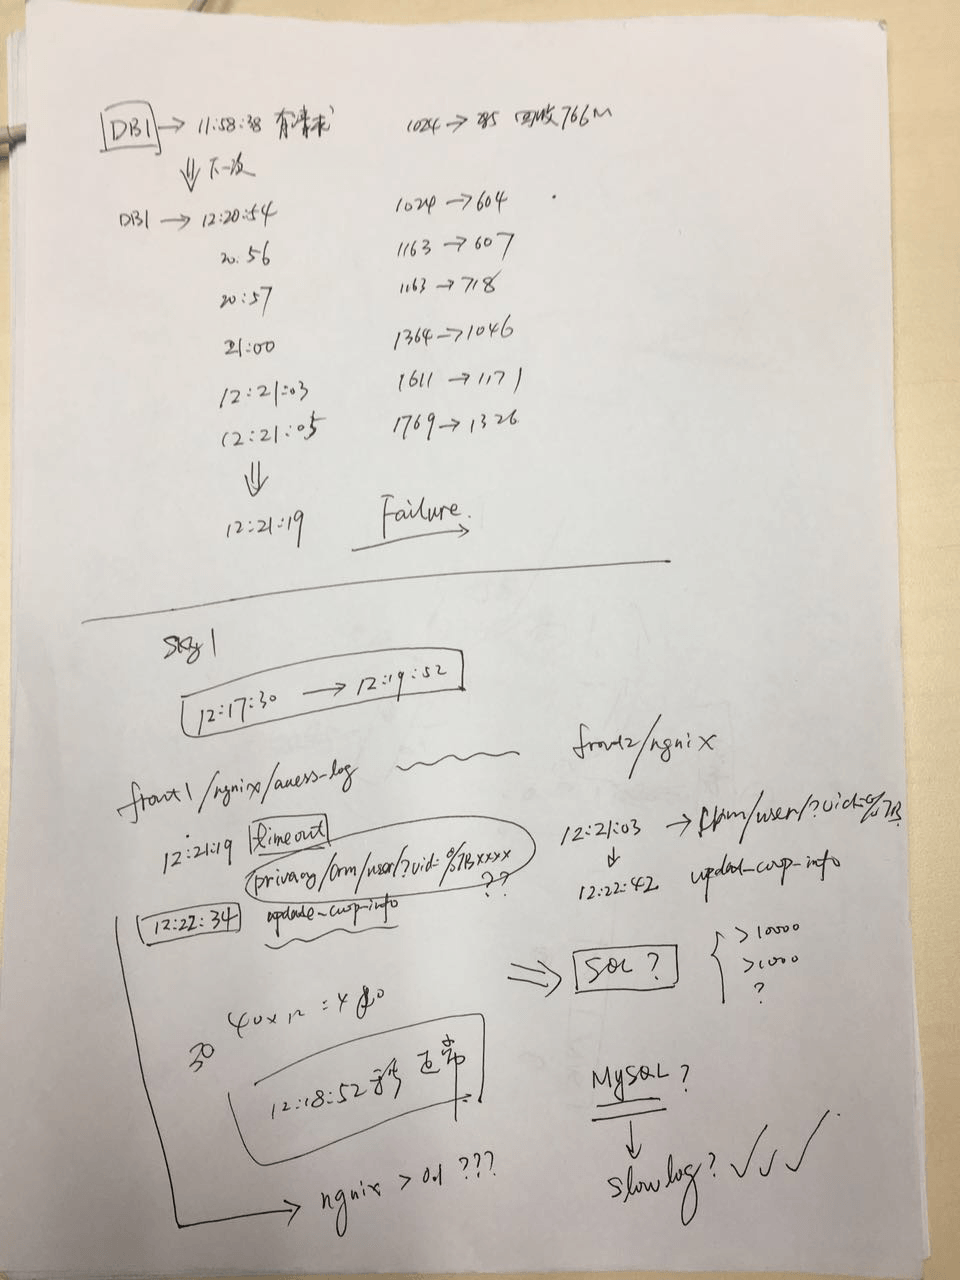 DB1 → 11:58:38 有请求 1024 → 回收766M
⇓ 下一次
DB1 → 12:20:54 1024 → 604
20:56 1163 → 607
20:57 1163 → 718
21:00 1364 → 1046
12:21:03 1611 → 1171
12:21:05 1769 → 1326
⇓
12:21:19 Failure.
sky1
12:17:30 → 12:19:52
front1/ngnix/access-log
12:21:19 timeout
privacy/orm/user/?uid=%7Bxxxx
??
12:22:34 update-coop-info
40x12 = 480
30
12:18:52 正常
ngnix > 0.1 ???
front2/ngnix
12:21:03 → /user/?uid=%7B
↓
12:22:42 updat-coop-info
⇒ SQL ? { >10000
>1000
?
MySQL ?
↓
slowlog? ✓✓✓